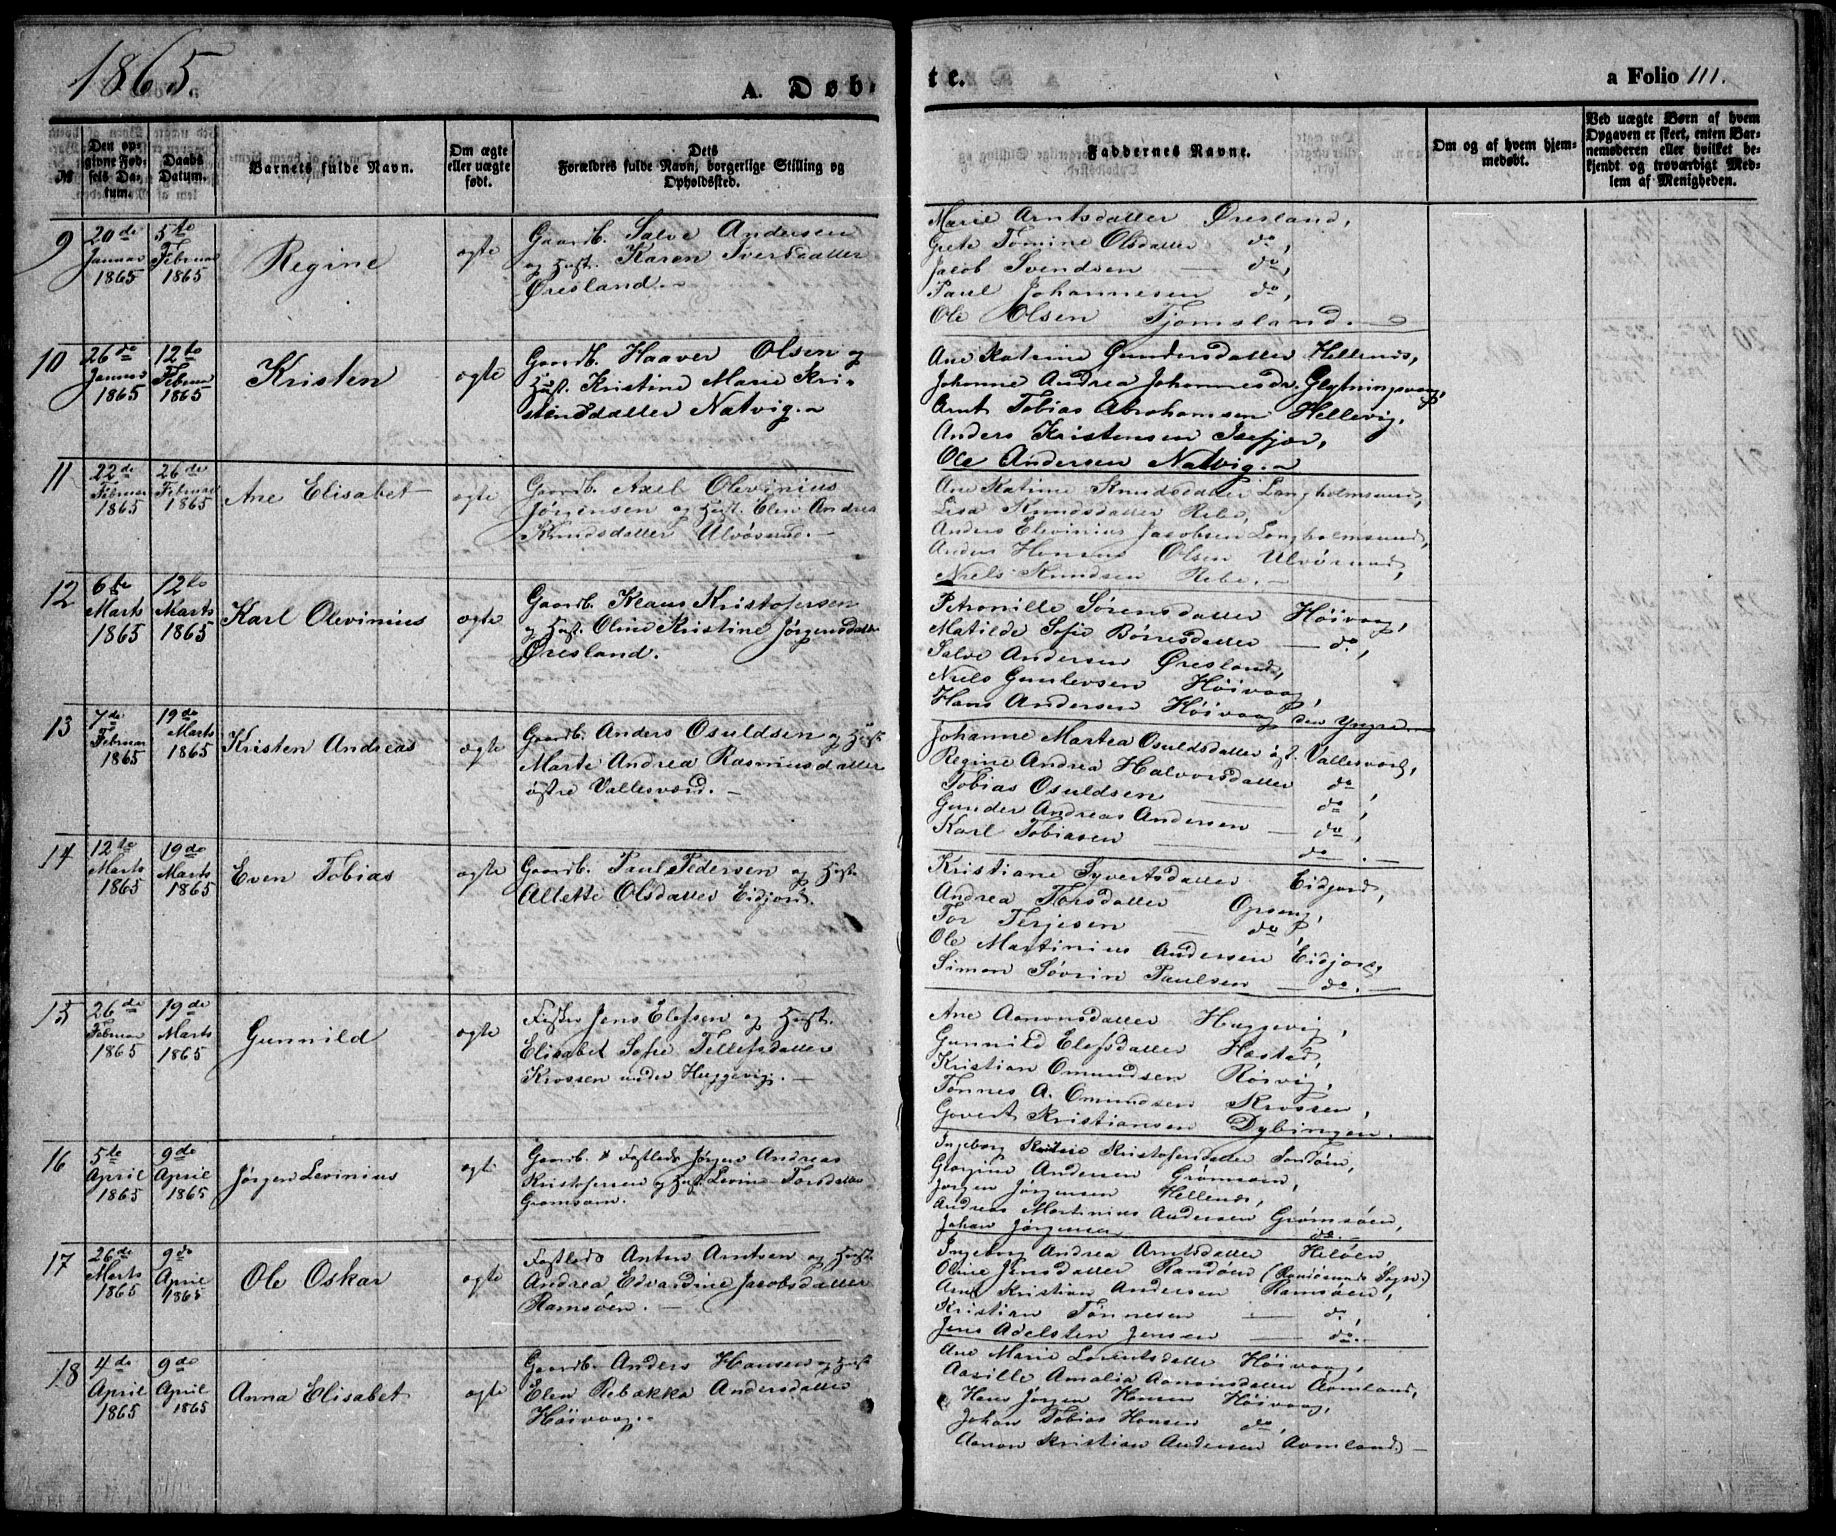 1865.
A. Døb-
te.
a Folio 111.
№
Den op-
givne Fød-
sels Da-
tum.
Daabs
Datum.
Barnets fulde Navn.
Om ægte
eller uægte
født.
Dets
Forældres fulde Navn, borgerlige Stilling og
Opholdssted.
Faddernes Navne.
Om og af hvem hjem-
medøbt.
Ved uægte Børn af hvem
Opgaven er skeet, enten Bar-
nemoderen eller hvilket be-
kjendt og troværdigt Med-
lem af Menigheden.
9
20de
Januar
1865
5te
Februar
1865
Regine
ægte
Gaardb. Salve Andersen
og Hust. Karen Iversdatter
Øresland.
Marie Arntsdatter Øresland,
Grete Tomine Olsdatter do,
Jacob Svendsen do,
Paul Johannesen do,
Ole Olsen Tjomsland.
10
26de
Januar
1865
12te
Februar
1865
Kristen
ægte
Gaardb. Haaver Olsen og
Hust. Kristine Marie Kri-
stensdatter Natvig.
Ane Katrine Gundersdatter Hellenes,
Johanne Andrea Johannesdr.
Arnt Tobias Abrahamsen Hellevig,
Anders Kristensen Isefjær,
Ole Andersen Natvig.
11
22de
Februar
1865
26de
Februar
1865
Ane Elisabet
ægte
Gaardb. Axel Olevinius
Jørgensen og Hust. Elen Andrea
Knudsdatter Ulvøsund.
Ane Katrine Knudsdatter Langholmsund,
Lisa Knudsdatter Rebe,
Anders Elevinius Jacobsen Langholmsund,
Anders Hansen Olsen Ulvøsund,
Niels Knudsen Rebe.
12
6te
Marts
1865
12te
Marts
1865
Karl Olevinius
ægte
Gaardb. Klaus Kristofersen
og Hust. Oline Kristine Jørgensdatter
Øresland.
Petronille Sørensdatter Høivaag,
Matilde Sofie Børresdatter do,
Salve Andersen Øresland,
Niels Gunlevsen Høivaag,
Hans Andersen Høivaag den Yngre.
13
7de
Februar
1865
19de
Marts
1865
Kristen Andreas
ægte
Gaardb. Anders Osuldsen og Hust.
Marte Andrea Rasmusdatter
østre Vallesværd.
Johanne Martea Osuldsdatter ø. Vallesværd,
Regine Andrea Halvorsdatter do,
Tobias Osuldsen do,
Gunder Andreas Andersen do,
Karl Tobiasen do.
14
12te
Marts
1865
19de
Marts
1865
Even Tobias
ægte
Gaardb. Paul Pedersen og Hust.
Allette Olsdatter Eidjord.
Kristiane Syvertsdatter Eidjord,
Andrea Torsdatter Opseng,
Tor Terjesen do,
Ole Martinius Andersen Eidjord,
Simon Søvrin Paulsen do.
15
26de
Februar
1865
19de
Marts
1865
Gunnild
ægte
Fisker Jens Elefsen og Hust.
Elisabet Sofie Tellefsdatter
Krossen under Huggevig.
Ane Aanonsdatter Huggevig,
Gunnild Elefsdatter Hæstad,
Kristian Omundsen Røisvig,
Tønnes A. Omundsen Krossen,
Govert Kristiansen Dybingen.
16
5te
April
1865
9de
April
1865
Jørgen Levinius
ægte
Gaardb. & Fastlods Jørgen Andreas
Kristofersen og Hust. Levine Torsdatter
Grømsøen.
Ingeborg Kristine Kristofersdatter Sandøen,
Georgine Andersen Grømsøen,
Jørgen Jørgensen Hellenes,
Andreas Martinius Andersen Grømsøen,
Johan Jørgensen do.
17
26de
Marts
1865
9de
April
1865
Ole Oskar
ægte
Fastlods Anton Arntsen og Hust.
Andrea Edvardine Jacobsdatter
Ramsøen.
Ingeborg Andrea Arntsdatter Heløen
Oline Jensdatter Randøen (Randøsunds Sogn.)
Arnt Kristian Andersen Ramsøen,
Kristian Tønnesen do,
Jens Adelsten Jensen do.
18
4de
April
1865
9de
April
1865
Anna Elisabet
ægte
Gaardb. Anders Hansen og Hust.
Elen Rebækka Andersdatter
Høivaag.
Ane Marie Lorentsdatter Høivaag,
Aasille Amalia Aanonsdatter Aamland,
Hans Jørgen Hansen Høivaag,
Johan Tobias Hansen do,
Aanon Kristian Andersen Aamland.